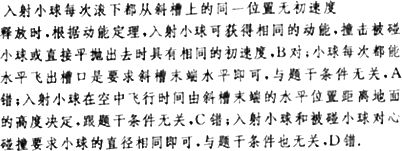 入射小球每次滚下都从斜槽上的同一位置无初速度
释放时,根据动能定理,入射小球可获得相同的动能,撞击被碰
小球或直接平抛出去时具有相同的初速度,B对;小球每次都能
水平飞出槽口是要求斜槽末端水平即可,与题干条件无关,A
错;入射小球在空中飞行时间由斜槽末端的水平位置距离地面
的高度决定,跟题干条件无关,C错;入射小球和被碰小球对心
碰撞要求小球的直径相同即可,与题干条件也无关,D错.